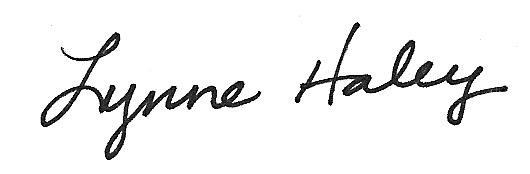 Lynne Haley